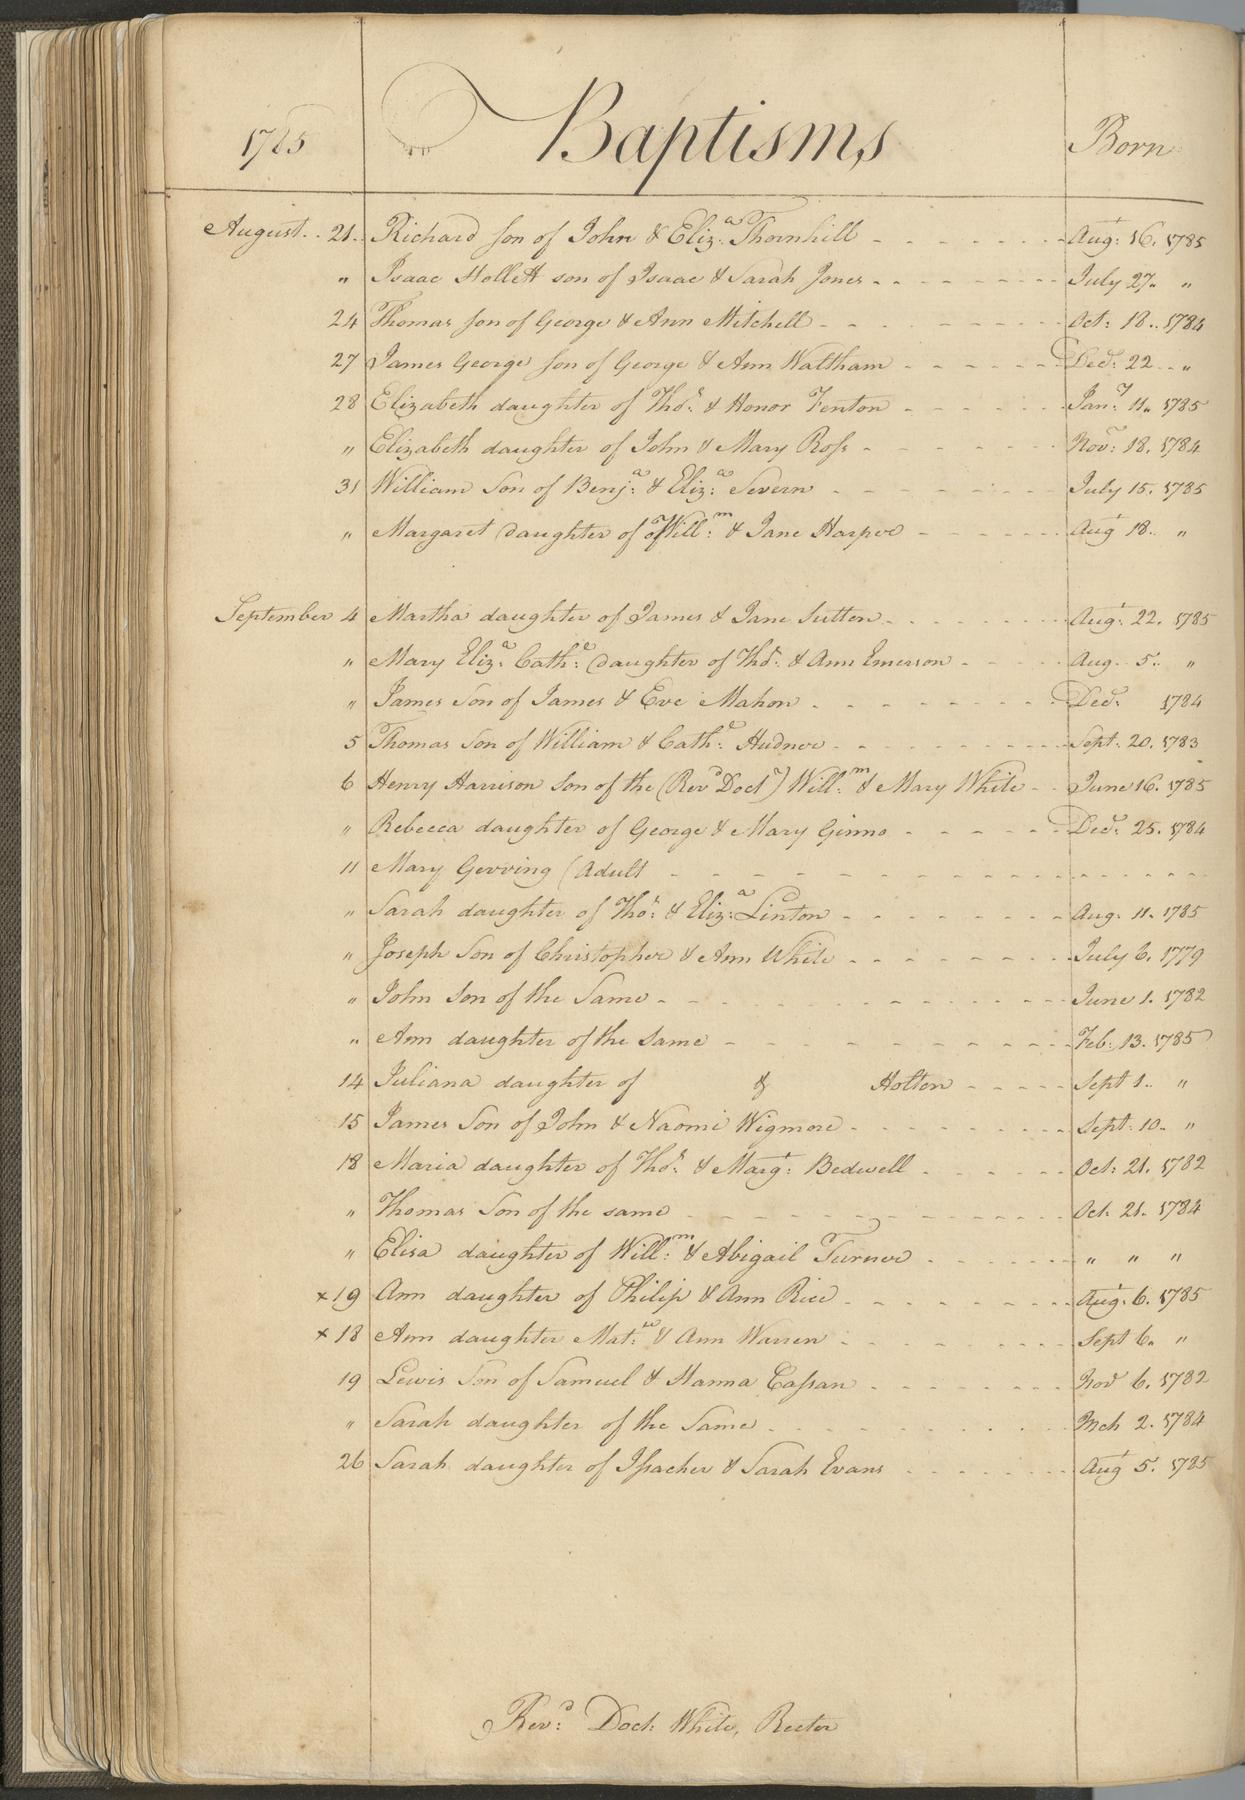 1785 Baptisms Born
August 21 Richard son of John & Eliz:a Thornhill Aug:t 16. 1785
" Isaac Hollett son of Isaac & Sarah Jones July 27. "
24 Thomas son of George & Ann Mitchell Oct: 18. 1784
27 James George son of George & Ann Waltham Dec:r 22 "
28 Elizabeth daughter of Tho:s & Honor Fenton Jan:y 11. 1785
" Elizabeth daughter of John & Mary Ross Nov:r 18. 1784
31 William Son of Benj:a & Eliz:a Severn July 15. 1785
" Margaret daughter of of Will:m & Jane Harper Aug:t 18. "
September 4 Martha daughter of James & Jane Sutton Aug:t 22. 1785
" Mary Eliz:a Cath:e daughter of Tho:s & Ann Emerson Aug. 5. "
" James Son of James & Eve Mahon Dec:r 1784
5 Thomas Son of William & Cath:e Hudner Sept: 20. 1783
6 Henry Harrison Son of the (Rev:d Doct:r) Will:m & Mary White June 16. 1785
" Rebecca daughter of George & Mary Ginno Dec:r 25. 1784
11 Mary Gerving (Adult
" Sarah daughter of Tho:s & Eliz:a Linton Aug. 11. 1785
" Joseph Son of Christopher & Ann White July 6. 1779
" John Son of the Same June 1. 1782
" Ann daughter of the Same Feb: 13. 1785
14 Juliana daughter of & Holton Sept 1. "
15 James Son of John & Naomi Wigmore Sept: 10. "
18 Maria daughter of Tho:s & Marg:t Bedwell Oct: 21. 1782
" Thomas Son of the same Oct. 21. 1784
" Elisa daughter of Will:m & Abigail Turner " " "
x 19 Ann daughter of Philip & Ann Rice Aug:t 6. 1785
x 18 Ann daughter Mat:w & Ann Warren Sept 6. "
19 Lewis Son of Samuel & Hanna Cassan Nov:r 6. 1782
" Sarah daughter of the Same Mch 2. 1784
26 Sarah daughter of Issacher & Sarah Evans Aug:t 5. 1785
Rev:d Doct: White, Rector